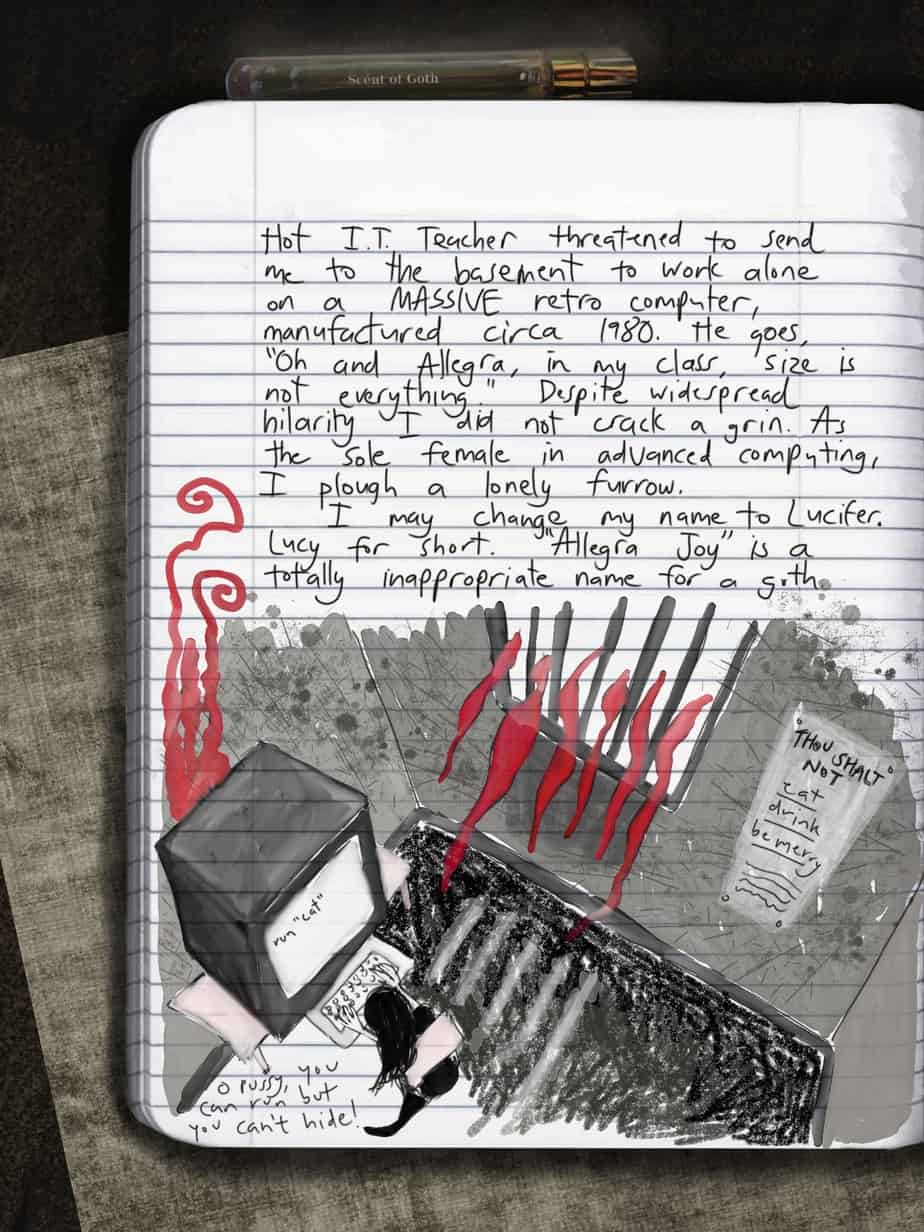 Scent of Goth
Hot I.T. Teacher threatened to send
me to the basement to work alone
on a MASSIVE retro computer,
manufactured circa 1980. He goes,
"Oh and Allegra, in my class, size is
not everything." Despite widespread
hilarity I did not crack a grin. As
the sole female in advanced computing,
I plough a lonely furrow.
I may change my name to Lucifer.
Lucy for short. "Allegra Joy" is a
totally inappropriate name for a goth.
THOU SHALT
NOT
eat
drink
be merry
run "cat"
O pussy, you
can run but
you can't hide!